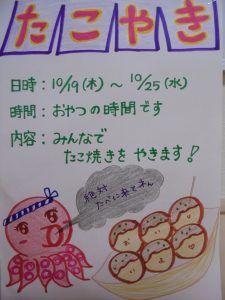 たこやき
日時：10/19(木)～10/25(水)
時間：おやつの時間です
内容：みんなで
たこ焼きを やきます！
絶対
たべに来てネ